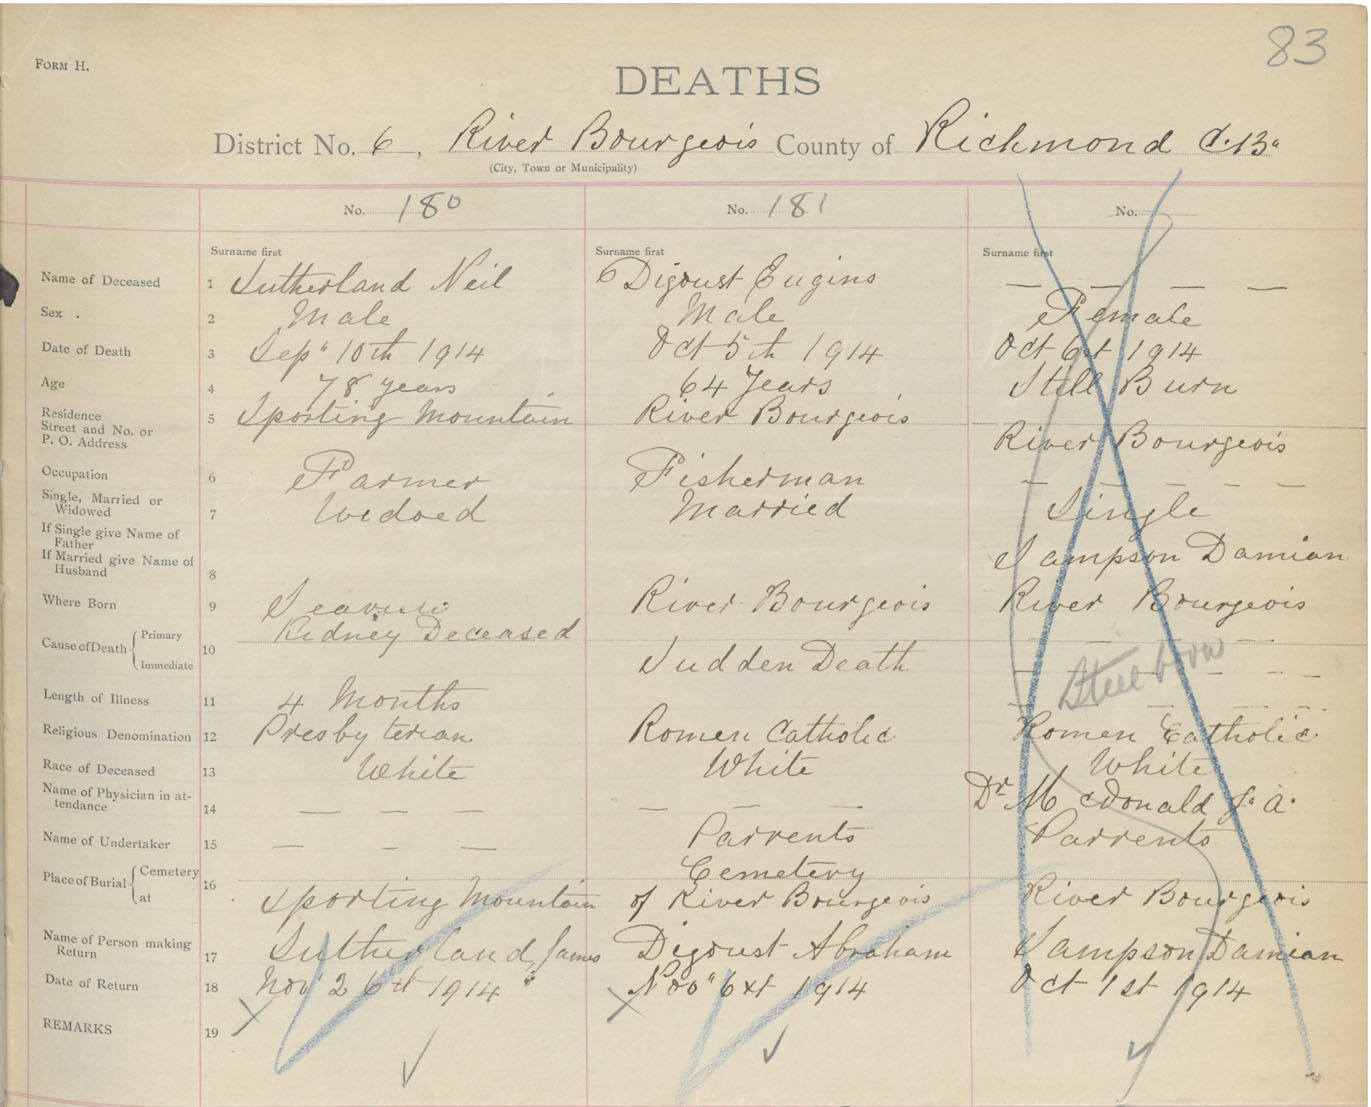 83
FORM H.
DEATHS
District No. 6, River Bourgeois County of Richmond C.B.
(City, Town or Municipality)
No. 180 No. 181 No.
Surname first Surname first Surname first
Name of Deceased 1 Sutherland Neil Digoust Eugins — — — —
Sex . 2 Male Male Female
Date of Death 3 Sep" 10th 1914 Oct 5th 1914 Oct 1914
Age 4 78 years 64 Years Still Burn
Residence
Street and No. or
P. O. Address 5 Sporting Mountain River Bourgeois River Bourgeois
Occupation 6 Farmer Fisherman — — — — —
Single, Married or
Widowed 7 Widoed Married Single
If Single give Name of
Father
If Married give Name of
Husband 8 Sampson Damian
Where Born 9 River Bourgeois River Bourgeois
Cause of Death { Primary Immediate 10 Kidney Deceased Sudden Death Steel born
Length of Illness 11 4 Months
Religious Denomination 12 Presbyterian Romen Catholic Romen Catholic
Race of Deceased 13 White White White
Name of Physician in at-
tendance 14 — — — — — — Dr McDonald J. A.
Name of Undertaker 15 — — — Parrents Parrents
Place of Burial { Cemetery at 16 Sporting Mountain Cemetery of River Bourgeois River Bourgeois
Name of Person making
Return 17 Sutherland, James Digoust Abraham Sampson Damian
Date of Return 18 Nov 26th 1914 Nov" 6xt 1914 Oct 1st 1914
REMARKS 19